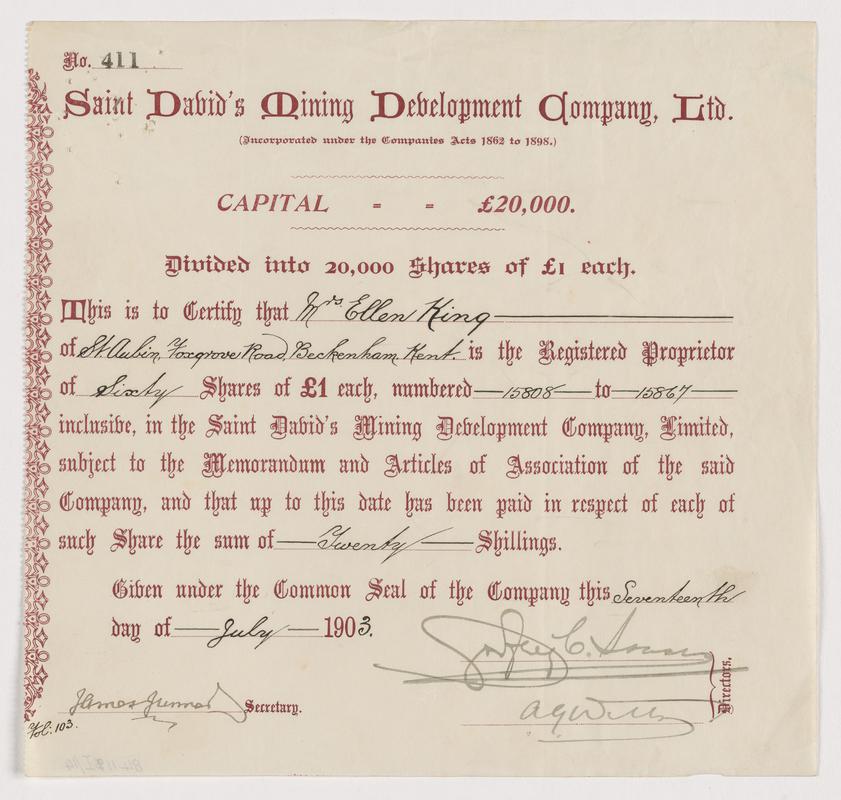 No. 411
Saint David's Mining Development Company, Ltd.
(Incorporated under the Companies Acts 1862 to 1898.)
CAPITAL = = £20,000.
Divided into 20,000 Shares of £1 each.
This is to Certify that Mrs Ellen King
of St. Aubin, Foxgrove Road, Beckenham, Kent. is the Registered Proprietor
of Sixty Shares of £1 each, numbered 15808 to 15867
inclusive, in the Saint David's Mining Development Company, Limited,
subject to the Memorandum and Articles of Association of the said
Company, and that up to this date has been paid in respect of each of
such Share the sum of Twenty Shillings.
Given under the Common Seal of the Company this Seventeenth
day of July 1903.
Godfrey C.
James Secretary.
Directors.
Fol: 103.